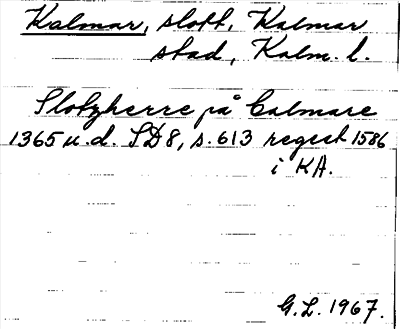 Kalmar, slott, Kalmar
stad, Kalm. l.
Slotzherre på Calmare
1365 u.d. SD 8, s. 613 regest 1586
i KA.
G.L. 1967.